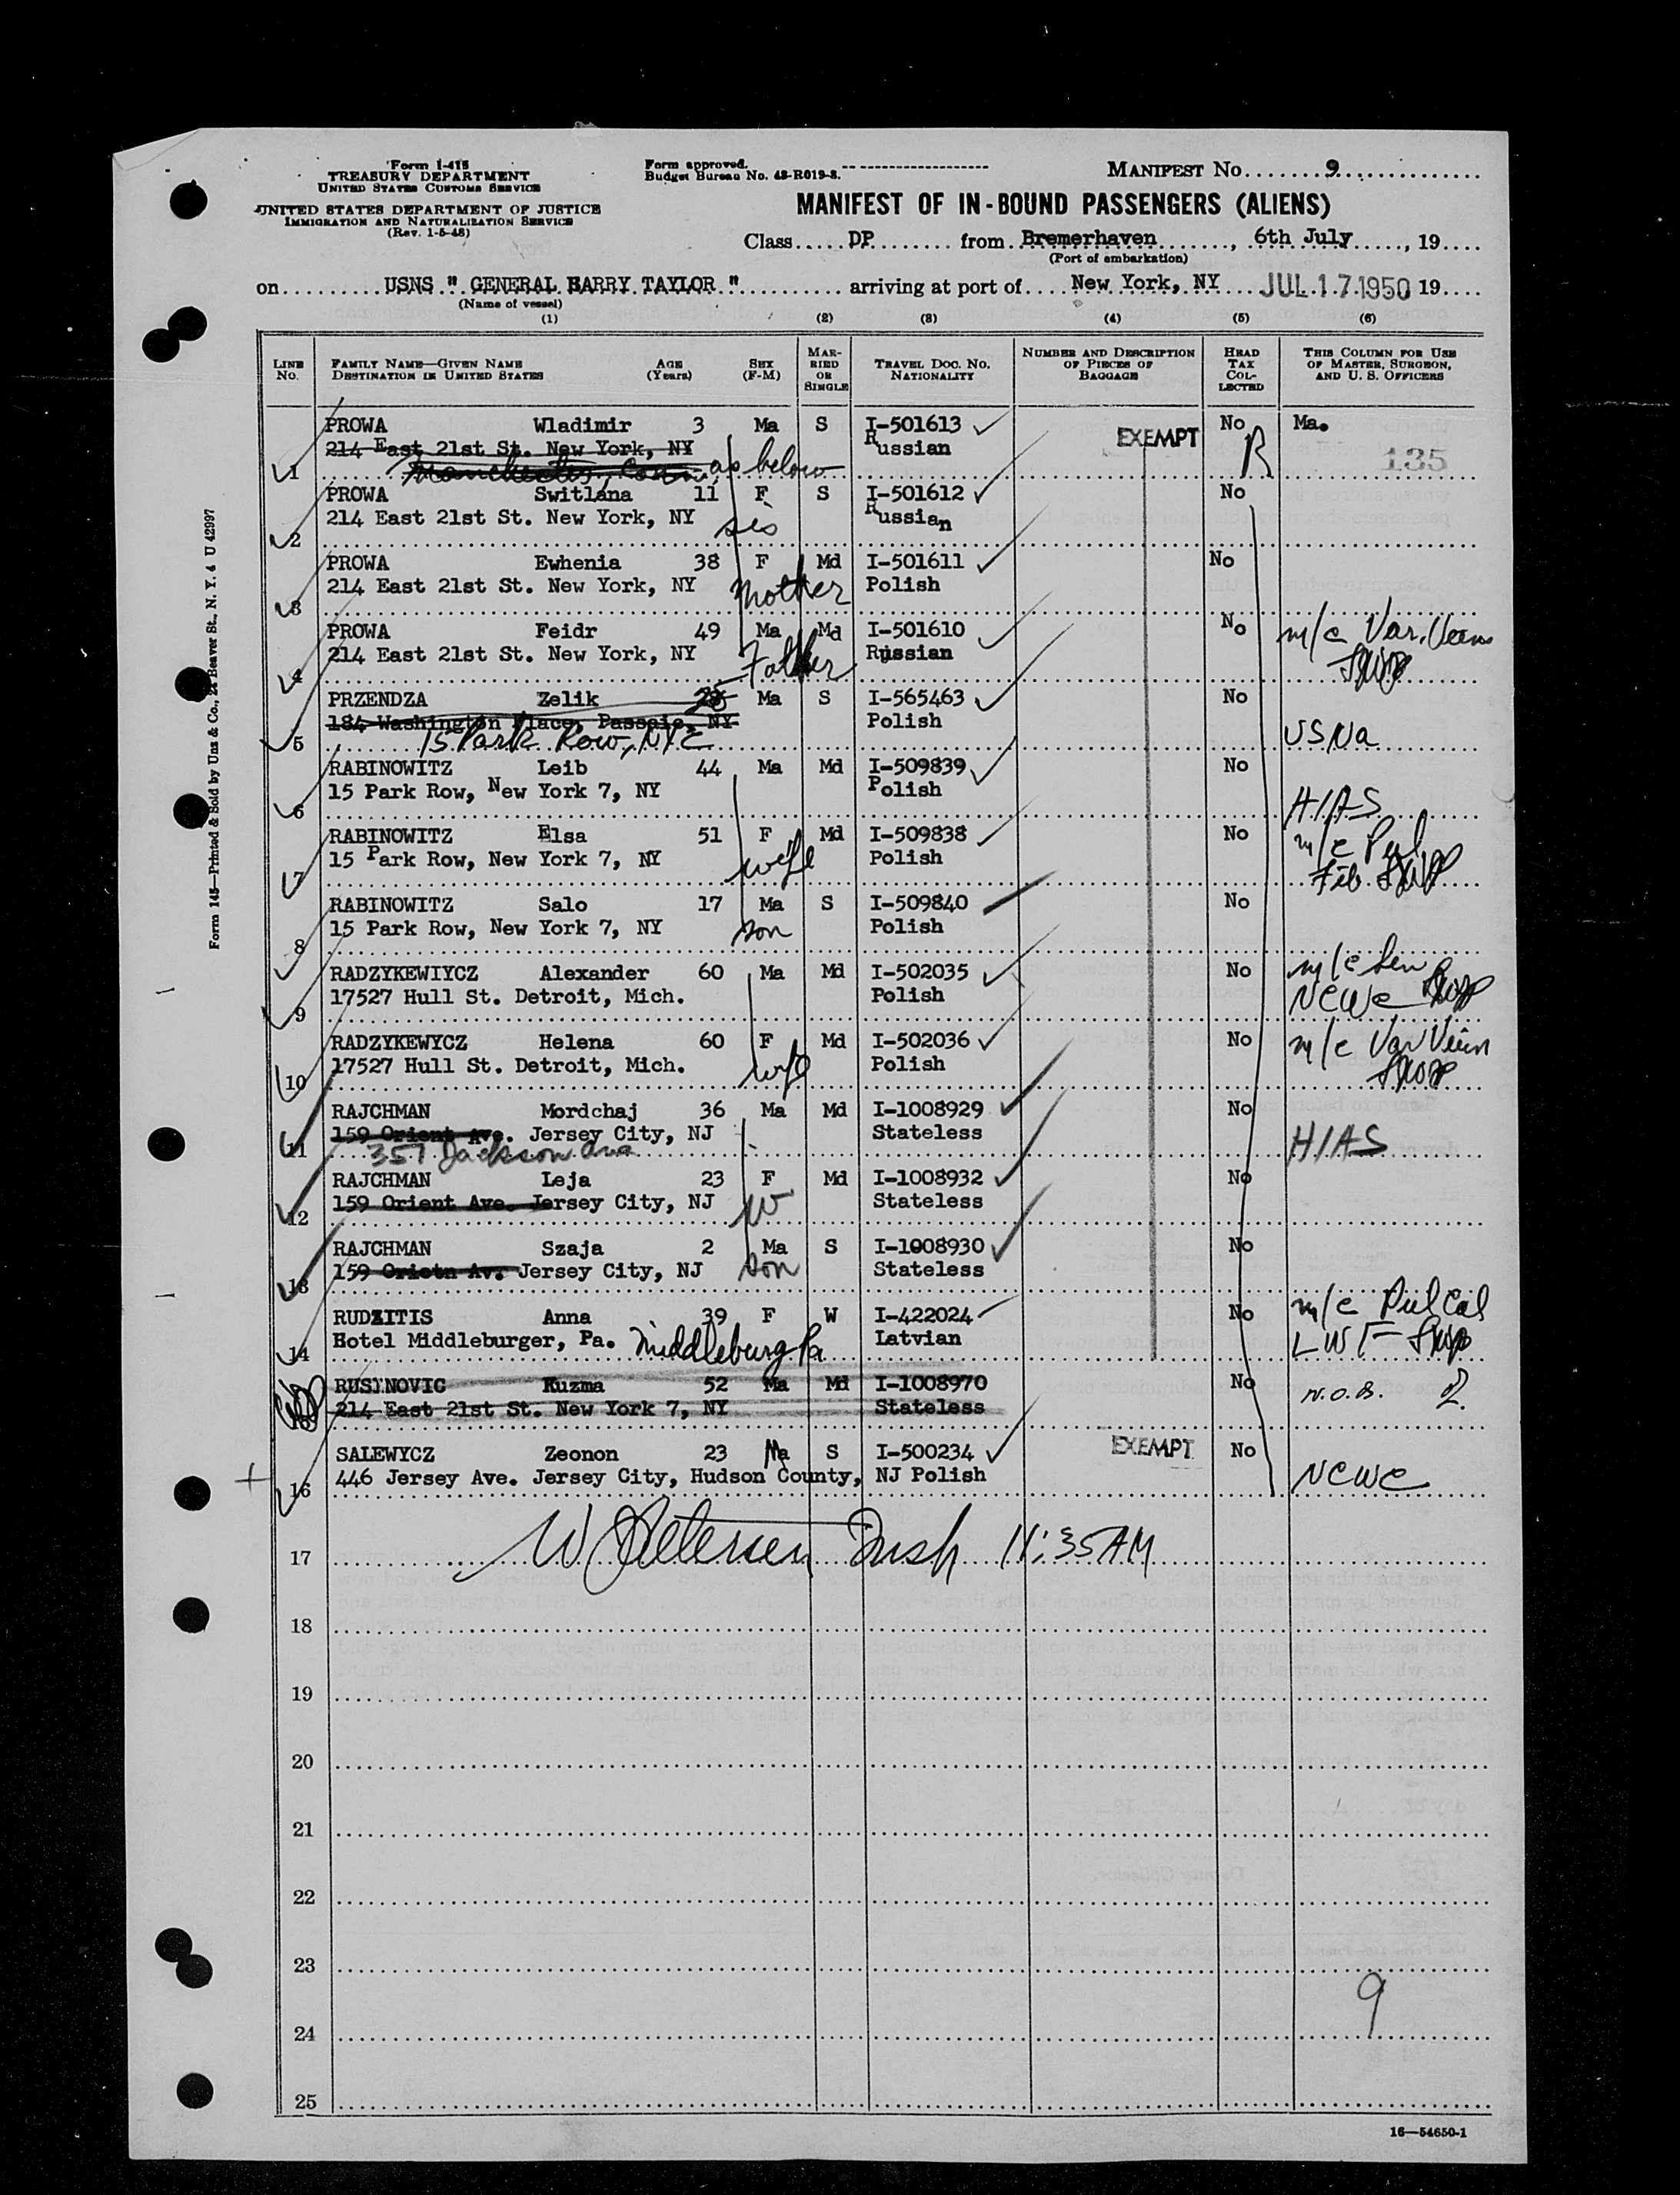 Form I-415
TREASURY DEPARTMENT
UNITED STATES CUSTOMS SERVICE
UNITED STATES DEPARTMENT OF JUSTICE
IMMIGRATION AND NATURALIZATION SERVICE
(Rev. 1-5-48)
Form approved.
Budget Bureau No. 43-R019-3.
MANIFEST No. 9
MANIFEST OF IN-BOUND PASSENGERS (ALIENS)
Class DP from Bremerhaven, 6th July, 19
(Port of embarkation)
on USNS " GENERAL HARRY TAYLOR " arriving at port of New York, NY JUL 17 1950 19
(Name of vessel)
(1) (2) (3) (4) (5) (6)
LINE No. FAMILY NAME—GIVEN NAME DESTINATION IN UNITED STATES AGE (Years) SEX (F-M) MARRIED OR SINGLE TRAVEL DOC. No. NATIONALITY NUMBER AND DESCRIPTION OF PIECES OF BAGGAGE HEAD TAX COLLECTED THIS COLUMN FOR USE OF MASTER, SURGEON, AND U. S. OFFICERS
PROWA Wladimir 3 Ma S I-501613 EXEMPT No Ma.
214 East 21st St. New York, NY Russian 135
1 Manchester, Conn. as below
PROWA Switlana 11 F S I-501612 No
214 East 21st St. New York, NY sis Russian
2
PROWA Ewhenia 38 F Md I-501611 No
214 East 21st St. New York, NY Mother Polish
3
PROWA Feidr 49 Ma Md I-501610 No m/c Var. Veins
214 East 21st St. New York, NY Father Russian
4
PRZENDZA Zelik 25 Ma S I-565463 No
184 Washington Place, Passaic, NY Polish
5 15 Park Row, NYC USNa
RABINOWITZ Leib 44 Ma Md I-509839 No
15 Park Row, New York 7, NY Polish
6 HIAS
RABINOWITZ Elsa 51 F Md I-509838 No m/c Pul
15 Park Row, New York 7, NY wife Polish Fib
7
RABINOWITZ Salo 17 Ma S I-509840 No
15 Park Row, New York 7, NY son Polish
8
RADZYKEWIYCZ Alexander 60 Ma Md I-502035 No m/c Sen
17527 Hull St. Detroit, Mich. Polish NCWC
9
RADZYKEWYCZ Helena 60 F Md I-502036 No m/c Var Vein
17527 Hull St. Detroit, Mich. wife Polish
10
RAJCHMAN Mordchaj 36 Ma Md I-1008929 No
159 Orient Ave. Jersey City, NJ Stateless HIAS
11 357 Jackson Ave
RAJCHMAN Leja 23 F Md I-1008932 No
159 Orient Ave. Jersey City, NJ W Stateless
12
RAJCHMAN Szaja 2 Ma S I-1008930 No
159 Orietn Av. Jersey City, NJ son Stateless
13
RUDZITIS Anna 39 F W I-422024 No m/c Pul Cal
Hotel Middleburger, Pa. Middleburg Pa Latvian LWF
14
RUSINOVIC Kuzma 52 Ma Md I-1008970 No N.O.B.
214 East 21st St. New York 7, NY Stateless
SALEWYCZ Zeonon 23 Ma S I-500234 EXEMPT No
446 Jersey Ave. Jersey City, Hudson County, NJ Polish NCWC
16
17 W Petersen Insp 11:35 AM
18
19
20
21
22
23
9
24
25
16—54650-1
Form 145—Printed & Sold by Unz & Co., 24 Beaver St., N. Y. 4 U 42997